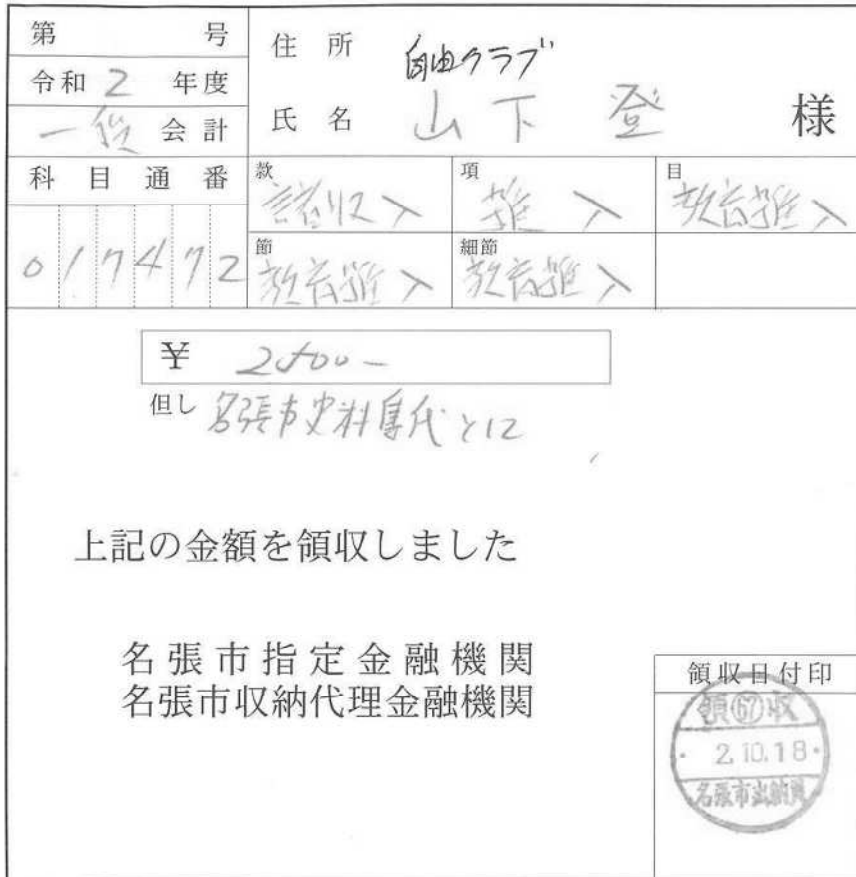 第 号
令和 2 年度
一般 会計
住所 自由クラブ
氏名 山下 登 様
科目通番
017472
款 諸収入
項 雑入
目 教育雑入
節 教育雑入
細節 教育雑入
¥ 2500-
但し 名張市史料集代として
上記の金額を領収しました
名張市指定金融機関
名張市収納代理金融機関
領収日付印
領67収
2.10.18
名張市出納員